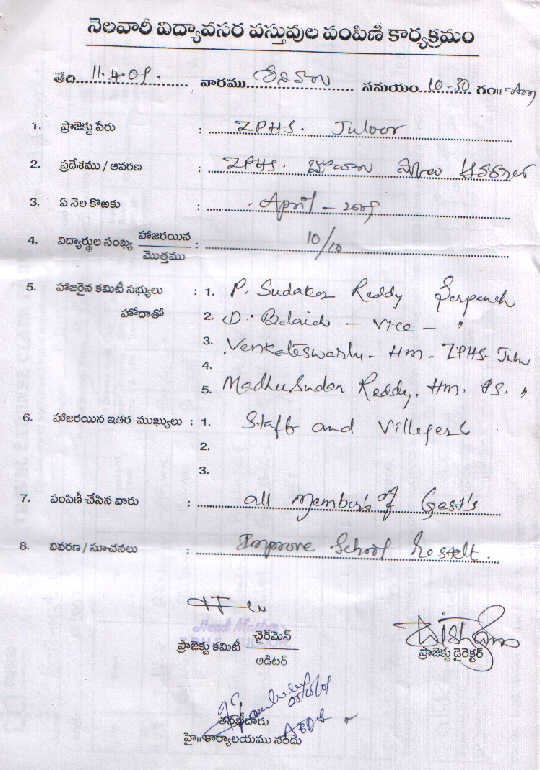 నెలవారీ విద్యావసర వస్తువుల పంపిణీ కార్యక్రమం
తేది 11.4.09. వారము శనివారం సమయం 10-30 గం॥
1. ప్రాజెక్టు పేరు : ZPHS. Juloor
2. ప్రదేశము / ఆవరణ : ZPHS.
3. ఏ నెల కొఱకు : April - 2009
4. విద్యార్థుల సంఖ్య హాజరయిన / మొత్తము : 10/10
5. హాజరైన కమిటీ సభ్యులు హోదాతో : 1. P. Sudakar Reddy Serpanch
2. D. - Vice - "
3. Venkateswarlu - HM - ZPHS-
4.
5. MadhuSudan Reddy, HM. PS. "
6. హాజరయిన ఇతర ముఖ్యులు : 1. Staff and Villegers
2.
3.
7. పంపిణీ చేసిన వారు : all Member's of Gest's
8. వివరణ / సూచనలు : Improve School Reselt.
ప్రాజెక్టు కమిటీ ఛైర్‌మెన్ / ఆడిటర్
ప్రాజెక్టు డైరెక్టర్